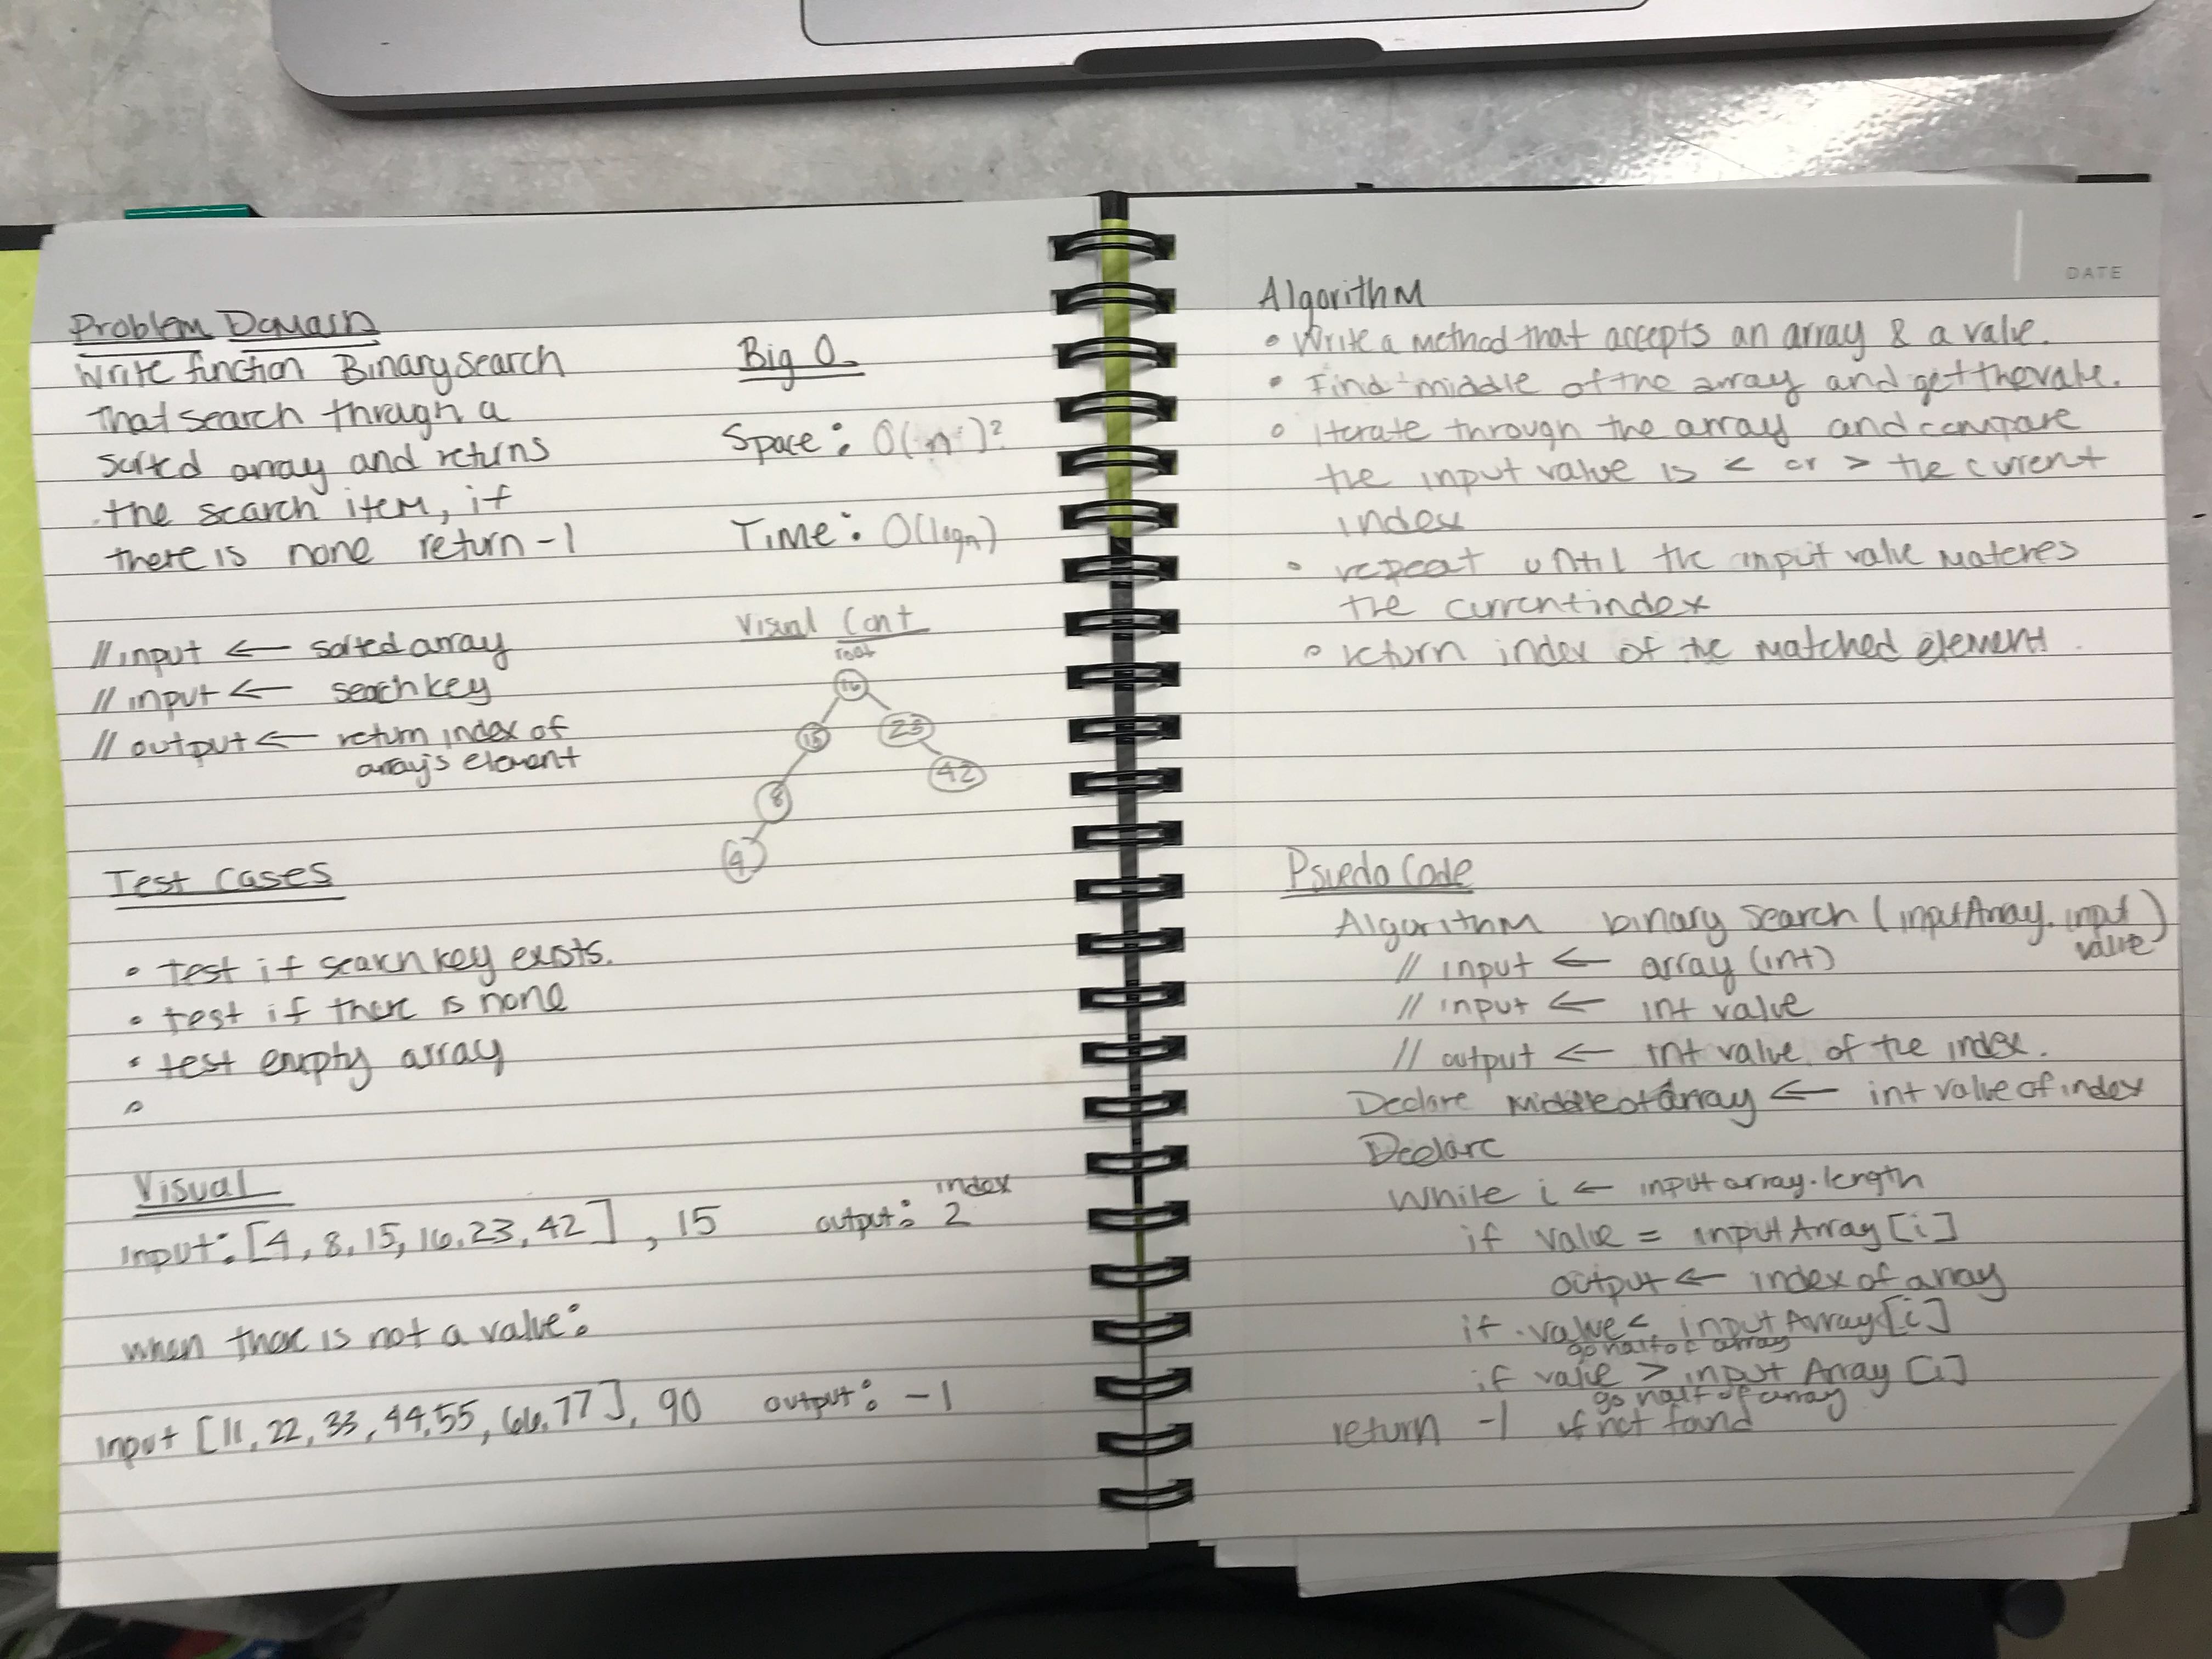 Problem Domain
Write function Binarysearch
that search through a
sorted array and returns
the search item, if
there is none return -1
// input ← sorted array
// input ← seachkey
// output ← return index of
array's element
Big O
Space: O(n)?
Time: O(logn)
Visual Cont
root
16
15 23
8 42
4
Test Cases
• test if search key exists.
• test if there is none
• test empty array
•
Visual
input: [4, 8, 15, 16, 23, 42], 15 output: 2
index
when there is not a value:
input [11, 22, 33, 44, 55, 66, 77], 90 output: -1
DATE
Algorithm
• Write a method that accepts an array & a value.
• Find middle of the array and get the value.
• Iterate through the array and compare
the input value is < or > the current
index
• repeat until the input value matches
the current index
• return index of the matched element.
Psuedo Code
Algorithm binary search (inputArray, input
value)
// input ← array (int)
// input ← int value
// output ← int value of the index.
Declare MiddleofArray ← int value of index
Declare
While i ← inputarray.length
if value = inputArray[i]
output ← index of array
if value < inputArray[i]
go half of array
if value > input Array [i]
go half of array
return -1 if not found